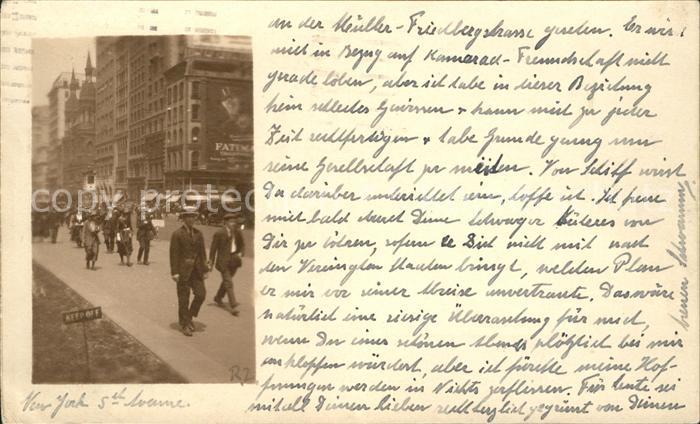 an der Müller-Friedbergstrasse gesehen. Er wird
mich in Bezug auf Kamerad-Freundschaft nicht
gerade loben, aber ich habe in dieser Beziehung
kein schlechtes Gewissen + kann mich zu jeder
Zeit rechtfertigen + habe Gründe genug um
seine Gesellschaft zu meiden. Von Schiff wirst
Du darüber unterrichtet sein, hoffe ich. Ich freue
mich bald durch Deine Schwager Näheres von
Dir zu hören, sofern er Dich nicht mit nach
den Vereinigten Staaten bringt, welchen Plan
er mir vor seiner Abreise anvertraute. Das wäre
natürlich eine riesige Überraschung für mich,
wenn Du eines schönen Abends plötzlich bei mir
anklopfen würdest, aber ich fürchte meine Hof-
fnungen werden in Nichts zerfliessen. Für heute sei
mit all Deinen Lieben recht herzlich gegrüsst von Deinem
treuen
FATIMA
KEEP OFF
New York 5th Avenue.